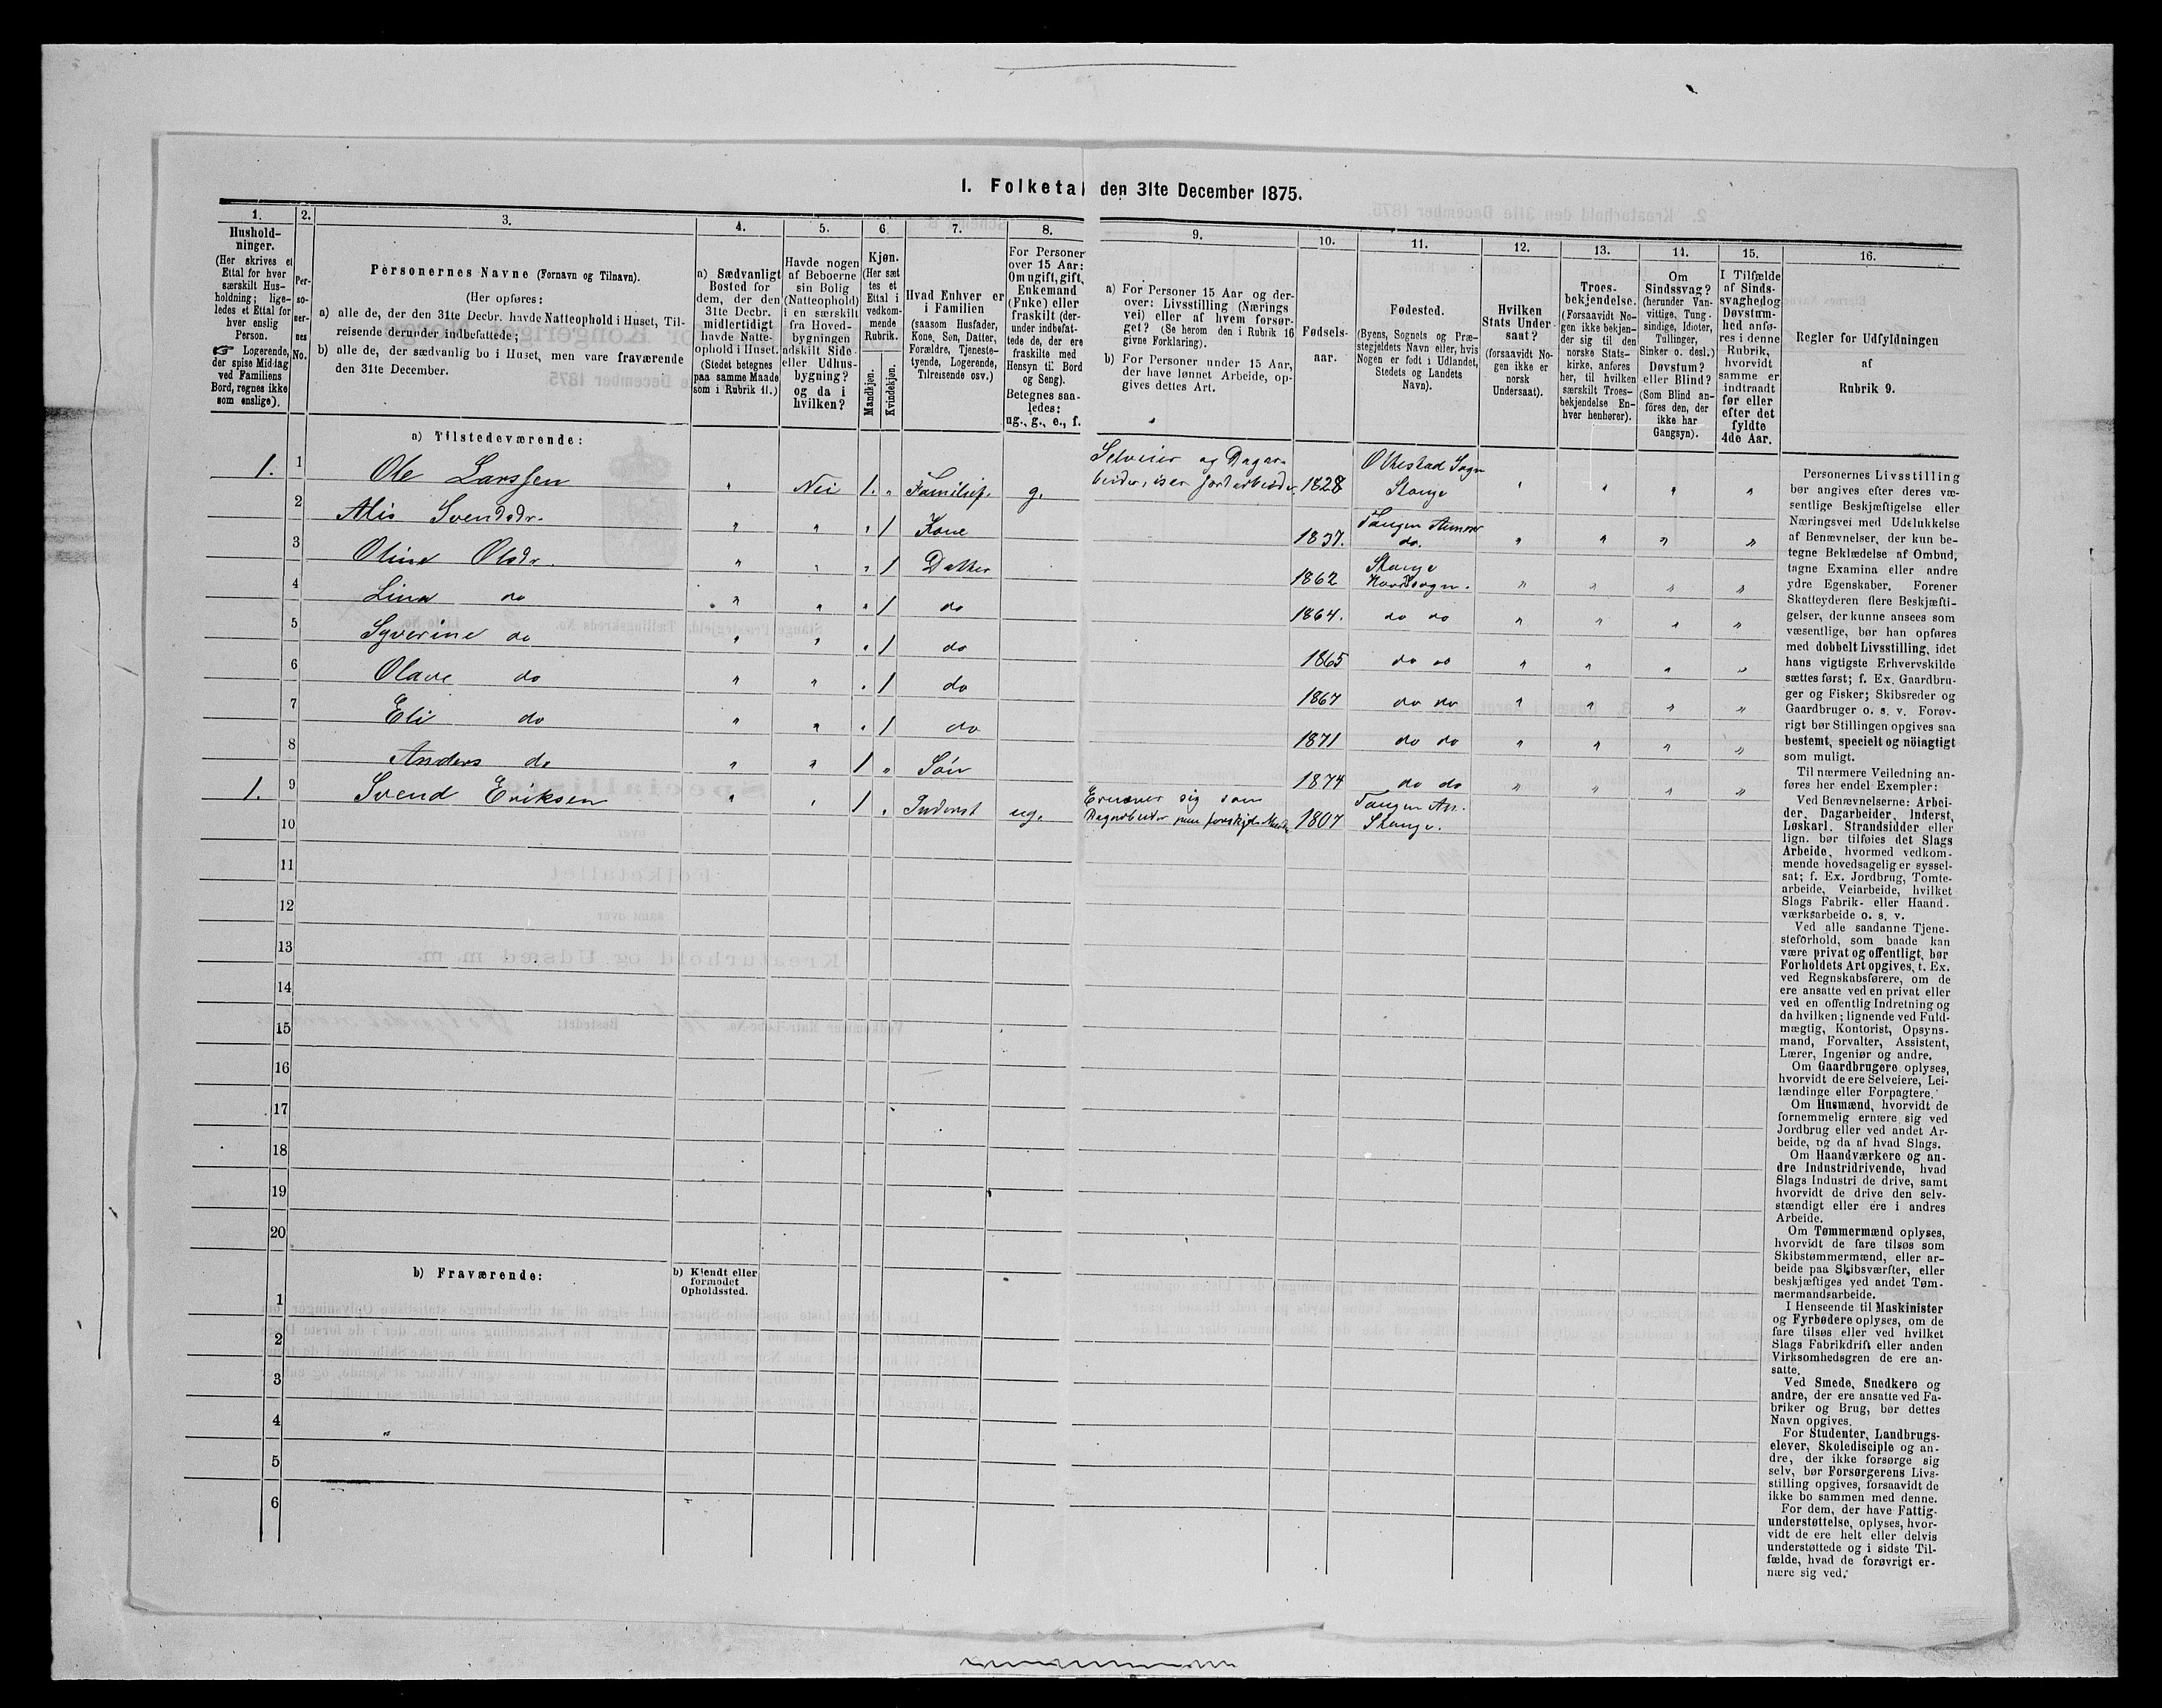 1. Folketal den 31te December 1875.
1.
Hushold-
ninger.
(Her skrives et
Ettal for hver
særskilt Hus-
holdning; lige-
ledes et Ettal for
hver enslig
Person.
☞ Logerende,
der spise Middag
ved Familiens
Bord, regnes ikke
som enslige).
2.
Per-
so-
ner-
nes
No.
3.
Personernes Navne (Fornavn og Tilnavn).
(Her opføres:
a) alle de, der den 31te Decbr. havde Natteophold i Huset, Til-
reisende derunder indbefattede;
b) alle de, der sædvanlig bo i Huset, men vare fraværende
den 31te December.
4.
a) Sædvanligt
Bosted for
dem, der den
31te Decbr.
midlertidigt
havde Natte-
ophold i Huset.
(Stedet betegnes
paa samme Maade
som i Rubrik 11.)
5.
Havde nogen
af Beboerne
sin Bolig
(Natteophold)
i en særskilt
fra Hoved-
bygningen
adskilt Side-
eller Udhus-
bygning?
og da i
hvilken?
6
Kjøn.
(Her sæt
tes et
Ettal i
vedkom-
mende
Rubrik.
Mandkjøn.
Kvindekjøn.
7.
Hvad Enhver er
i Familien
(saasom Husfader,
Kone, Søn, Datter,
Forældre, Tjeneste-
tyende, Logerende,
Tilreisende osv.)
8.
For Personer
over 15 Aar:
Om ugift, gift,
Enkemand
(Enke) eller
fraskilt (der-
under indbefat-
tede de, der ere
fraskilte med
Hensyn til Bord
og Seng).
Betegnes saa-
ledes:
ug., g., e., f.
9.
a) For Personer 15 Aar og der-
over: Livsstilling (Nærings
vei) eller af hvem forsør-
get? (Se herom den i Rubrik 16
givne Forklaring).
b) For Personer under 15 Aar,
der have lønnet Arbeide, op-
gives dettes Art.
10.
Fødsels-
aar.
11.
Fødested.
(Byens, Sognets og Præ-
stegjeldets Navn eller, hvis
Nogen er født i Udlandet,
Stedets og Landets
Navn).
12.
Hvilken
Stats Under-
saat?
(forsaavidt No-
gen ikke er
norsk
Undersaat).
13.
Troes-
bekjendelse.
(Forsaavidt No-
gen ikke bekjen-
der sig til den
norske Stats-
kirke, anføres
her, til hvilken
særskilt Troes-
bekjendelse En-
hver henhører).
14.
Om
Sindssvag?
(herunder Van-
vittige, Tung-
sindige, Idioter,
Tullinger,
Sinker o. desl.)
Døvstum?
eller Blind?
(Som Blind an-
føres den, der
ikke har
Gangsyn).
15.
I Tilfælde
af Sinds-
svaghed og
Døvstum-
hed anfø-
res i denne
Rubrik,
hvorvidt
samme er
indtraadt
før eller
efter det
fyldte
4de Aar.
16.
Regler for Udfyldningen
af
Rubrik 9.
a) Tilstedeværende:
1. 1 Ole Larssen " Nei 1. " Familief. g. Selveier og Dagar- beider, især 1828 Ottestad Sogn Stange " " " "
2 Svendsdr. " " " 1 Kone 1837. Tangen do. " " " "
3 Oline Olsdr. " " " 1 Datter 1862 Stange " " " "
4 Lina do " " " 1 do 1864. do do " " " "
5 Syverine do " " " 1 do 1865 do do " " " "
6 Olave do " " " 1 do 1867 do do " " " "
7 Eli do " " " 1 do 1871 do do " " " "
8 Anders do " " 1 " Søn 1874 do do " " " "
1. 9 Svend Eriksen " " 1 " Inderst ug. Ernærer sig som Dagarbeider 1807 Tangen An. Stange.
10
11
12
13
14
15
16
17
18
19
20
b) Fraværende:
b) Kjendt eller
formodet
Opholdssted.
1
2
3
4 "
5
6
Personernes Livsstilling
bør angives efter deres væ-
sentlige Beskjæftigelse eller
Næringsvei med Udelukkelse
af Benævnelser, der kun be-
tegne Beklædelse af Ombud,
tagne Examina eller andre
ydre Egenskaber. Forener
Skatteyderen flere Beskjæfti-
gelser, der kunne ansees som
væsentlige, bør han opføres
med dobbelt Livsstilling, idet
hans vigtigste Erhvervskilde
sættes først; f. Ex. Gaardbru-
ger og Fisker; Skibsreder og
Gaardbruger o. s. v. Forøv-
rigt bør Stillingen opgives saa
bestemt, specielt og nöiagtigt
som muligt.
Til nærmere Veiledning an-
føres her endel Exempler:
Ved Benævnelserne: Arbei-
der, Dagarbeider, Inderst,
Løskarl, Strandsidder eller
lign. bør tilføies det Slags
Arbeide, hvormed vedkom-
mende hovedsagelig er syssel-
sat; f. Ex. Jordbrug, Tomte-
arbeide, Veiarbeide, hvilket
Slags Fabrik- eller Haand-
værksarbeide o. s. v.
Ved alle saadanne Tjene-
steforhold, som baade kan
være privat og offentligt, bør
Forholdets Art opgives, t. Ex.
ved Regnskabsførere, om de
ere ansatte ved en privat eller
ved en offentlig Indretning og
da hvilken; lignende ved Fuld-
mægtig, Kontorist, Opsyns-
mand, Forvalter, Assistent,
Lærer, Ingeniør og andre.
Om Gaardbrugere oplyses,
hvorvidt de ere Selveiere, Lei-
lændinge eller Forpagtere.
Om Husmænd, hvorvidt de
fornemmelig ernære sig ved
Jordbrug eller ved andet Ar-
beide, og da af hvad Slags.
Om Haandværkere og an-
dre Industridrivende, hvad
Slags Industri de drive, samt
hvorvidt de drive den selv-
stændigt eller ere i andres
Arbeide.
Om Tømmermænd oplyses,
hvorvidt de fare tilsøs som
Skibstømmermænd, eller ar-
beide paa Skibsværfter, eller
beskjæftiges ved andet Tøm-
mermandsarbeide.
I Henseende til Maskinister
og Fyrbødere oplyses, om de
fare tilsøs eller ved hvilket
Slags Fabrikdrift eller anden
Virksomhedsgren de ere an-
satte.
Ved Smede, Snedkere og
andre, der ere ansatte ved Fa-
briker og Brug, bør dettes
Navn opgives.
For Studenter, Landbrugs-
elever, Skoledisciple og an-
dre, der ikke forsørge sig
selv, bør Forsørgerens Livs-
stilling opgives, forsaavidt de
ikke bo sammen med denne.
For dem, der have Fattig-
understøttelse, oplyses, hvor-
vidt de ere helt eller delvis
understøttede og i sidste Til-
fælde, hvad de forøvrigt er-
nære sig ved.